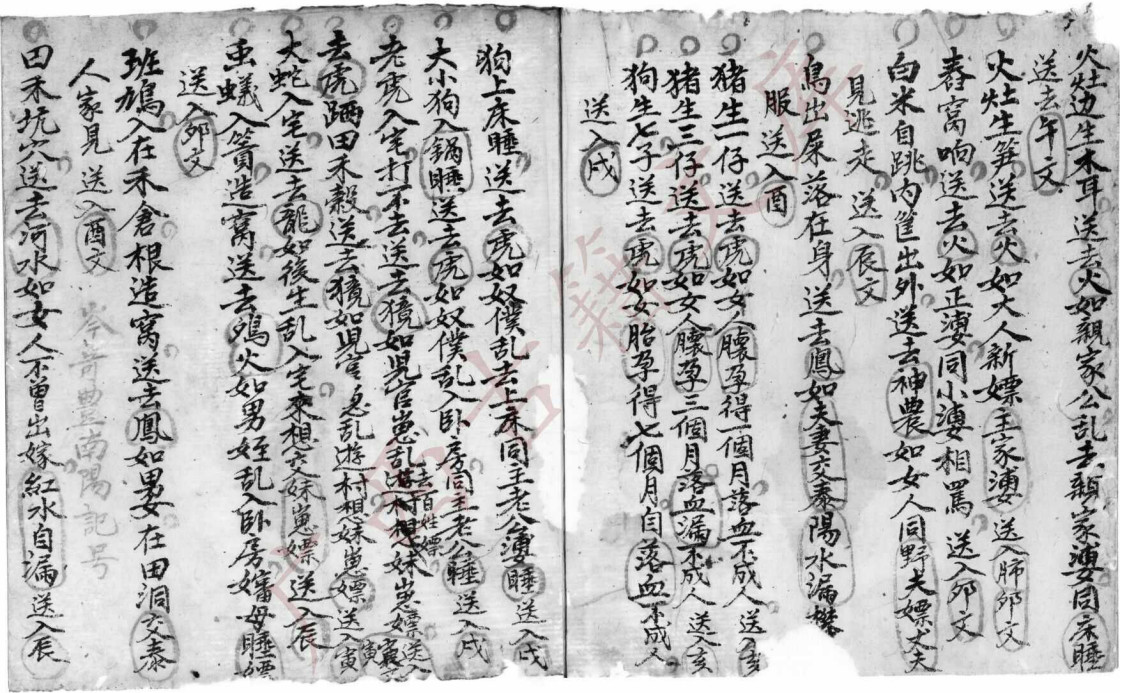 火灶边生木耳送去火如親家公乱去親家婆同床睡
送去午文
火灶生笋送去火如大人新嫖主家婆送入肺卯文
舂窝响送去火如正婆同小婆相罵送入卯文
白米自跳内筐出外送去神農如女人同野夫嫖丈夫
見逃走送入辰文
鳥出屎落在身送去鳳如夫妻交泰陽水漏
服送入酉
猪生一仔送去虎如女人懷孕得一個月落血不成人送入亥
猪生三仔送去虎如女人懷孕三個月落血漏不成人送亥
狗生七子送去虎如女胎孕得七個月自落血不成人
送入戌
狗上床睡送去虎如奴僕乱去上床同主老公婆睡送入戌
大小狗入鍋睡送去虎如奴僕乱入卧房同主老公睡送入戌
老虎入宅打不去送去獍如児官崽乱去百姓嫖游村想妹崽嫖送入寅
去虎晒田禾穀送去獍如児官崽乱遊村相想妹崽嫖送入寅
大蛇入宅送去龍如後生乱入宅來想交妹崽嫖送入辰
虫蟻入簣造窝送去鴉火如男姪乱入卧房嬸母睡嫖
送入卯文
班鳩入在禾倉根造窝送去鳳如男女在田洞交泰
人家見送入酉文
岑奇豊南陽記号
田禾坑穴送去河水如女人不曾出嫁紅水自漏送入辰